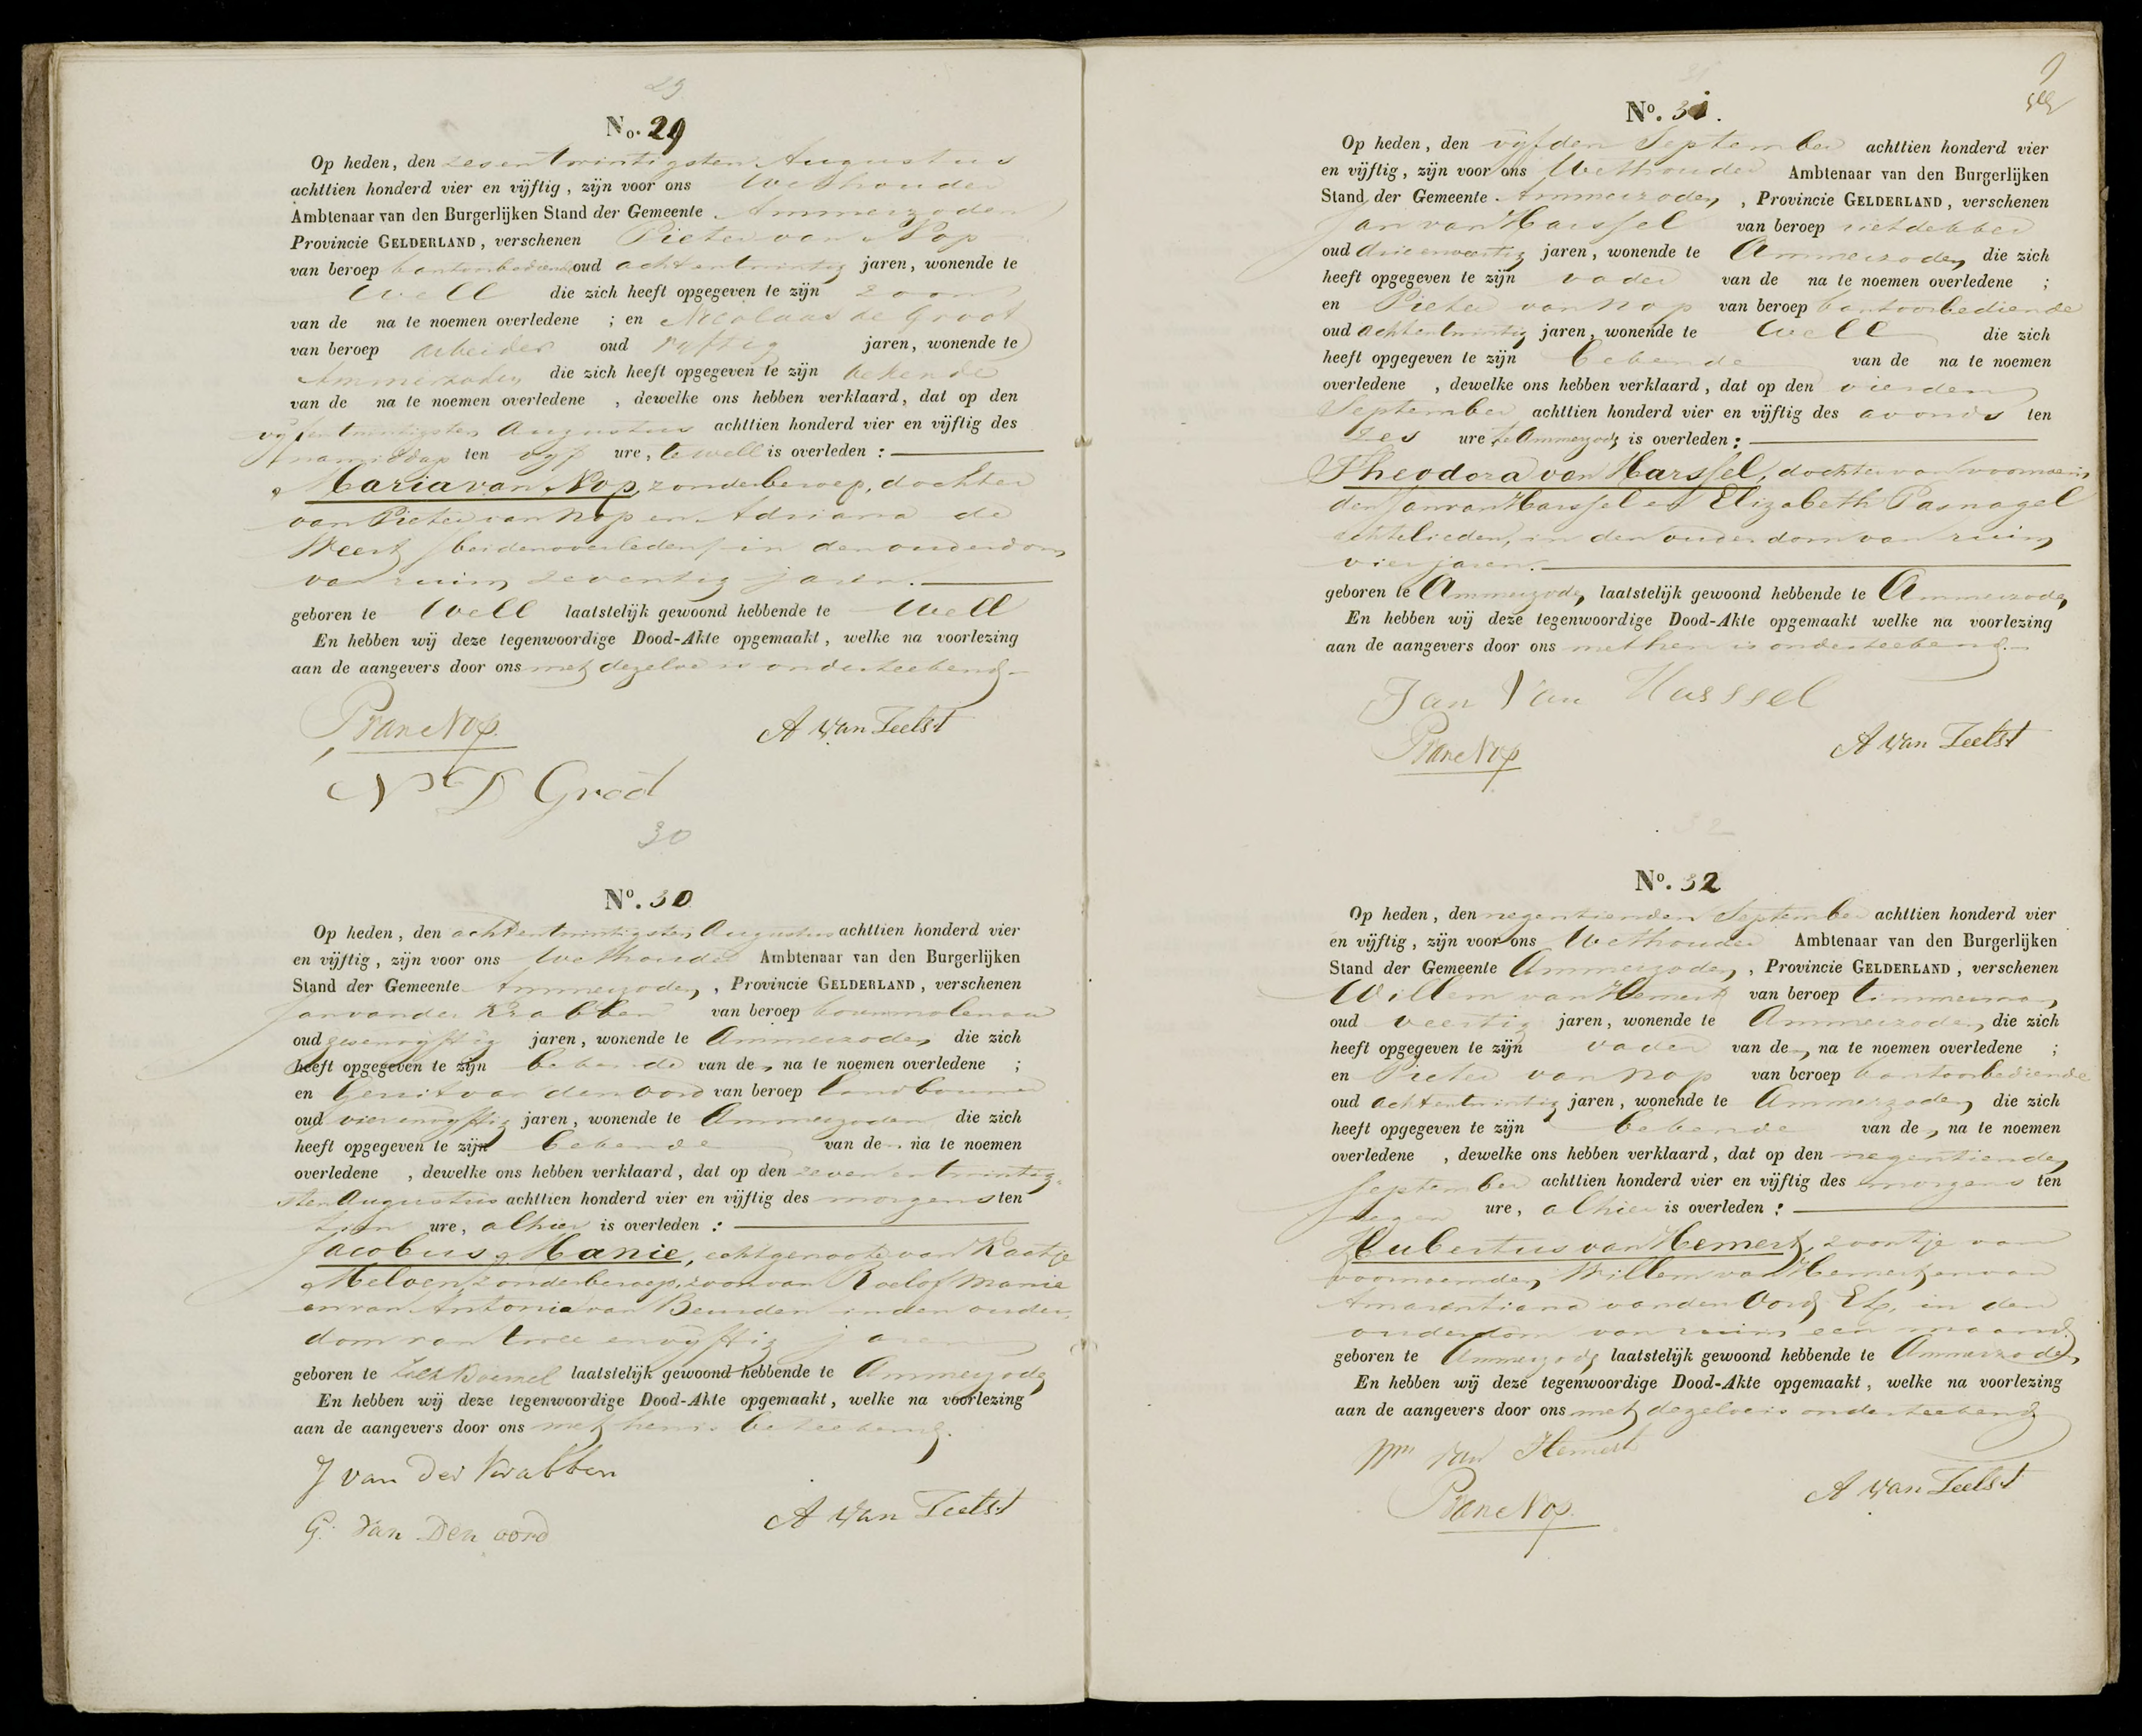 29
No. 29
Op heden, den zesentwintigsten Augustus
achttien honderd vier en vijftig, zijn voor ons Wethouder
Ambtenaar van den Burgerlijken Stand der Gemeente Ammerzoden
Provincie GELDERLAND, verschenen Pieter van Nop
van beroep kantoorbediende oud achtentwintig jaren, wonende te
Well die zich heeft opgegeven te zijn zoon
van de na te noemen overledene ; en Nicolaas de Groot
van beroep arbeider oud vyftig jaren, wonende te
Ammerzoden die zich heeft opgegeven te zijn bekende
van de na te noemen overledene , dewelke ons hebben verklaard, dat op den
vyfentwintigsten Augustus achttien honderd vier en vijftig des
namiddags ten vyf ure, te Well is overleden :
Maria van Nop, zonder beroep, dochter
van Pieter van Nop en Adriana de
Weert (beiden overleden) in den ouderdom
van ruim zeventig jaren.
geboren te Well laatstelijk gewoond hebbende te Well
En hebben wij deze tegenwoordige Dood-Akte opgemaakt, welke na voorlezing
aan de aangevers door ons met dezelve is onderteekend.
P van Nop.
A van Zeelst
N D Grood
30
No. 30
Op heden, den achtentwintigsten Augustus achttien honderd vier
en vijftig, zijn voor ons Wethouder Ambtenaar van den Burgerlijken
Stand der Gemeente Ammerzoden, Provincie GELDERLAND, verschenen
Jan van der Krabben van beroep korenmolenaar
oud zesenvyftig jaren, wonende te Ammerzoden die zich
heeft opgegeven te zijn bekende van de na te noemen overledene ;
en Gerrit van den Oord van beroep landbouwer
oud vierenvyftig jaren, wonende te Ammerzoden die zich
heeft opgegeven te zijn bekende van de na te noemen
overledene , dewelke ons hebben verklaard, dat op den zevenentwintig-
sten Augustus achttien honderd vier en vijftig des morgens ten
tien ure, alhier is overleden :
Jacobus Manie, echtgenoote van Kaatje
Meloen, zonder beroep, zoon van Roelof Manie
en van Antonia van Beurden in den ouder-
dom van twee en vyftig jaren
geboren te Zaltboemel laatstelijk gewoond hebbende te Ammerzoden
En hebben wij deze tegenwoordige Dood-Akte opgemaakt, welke na voorlezing
aan de aangevers door ons met hen is geteekend.
J van der Krabben
G. van Den oord
A van Zeelst
9
31
No. 31.
Op heden, den vyfden September achttien honderd vier
en vijftig, zijn voor ons Wethouder Ambtenaar van den Burgerlijken
Stand der Gemeente Ammerzoden, Provincie GELDERLAND, verschenen
Jan van Harssel van beroep rietdekker
oud drieenveertig jaren, wonende te Ammerzoden die zich
heeft opgegeven te zijn vader van de na te noemen overledene ;
en Pieter van Nop van beroep kantoorbediende
oud achtentwintig jaren, wonende te Well die zich
heeft opgegeven te zijn bekende van de na te noemen
overledene , dewelke ons hebben verklaard, dat op den vierden
September achttien honderd vier en vijftig des avonds ten
zes ure, te Ammerzod. is overleden :
Theodora van Harssel, dochter van voornoem-
den Jan van Harssel en Elizabeth Pasnagel
echtelieden, in den ouderdom van ruim
vier jaren.
geboren te Ammerzoden, laatstelijk gewoond hebbende te Ammerzoden
En hebben wij deze tegenwoordige Dood-Akte opgemaakt welke na voorlezing
aan de aangevers door ons met hen is onderteekend.
Jan Van Hassel
A van Zeelst
P van Nop
32
No. 32
Op heden, den negentienden September achttien honderd vier
en vijftig, zijn voor ons Wethouder Ambtenaar van den Burgerlijken
Stand der Gemeente Ammerzoden, Provincie GELDERLAND, verschenen
Willem van Hemert van beroep timmerman
oud veertig jaren, wonende te Ammerzoden, die zich
heeft opgegeven te zijn vader van de na te noemen overledene ;
en Pieter van Nop van beroep kantoorbediende
oud achtentwintig jaren, wonende te Ammerzoden die zich
heeft opgegeven te zijn bekende van de na te noemen
overledene , dewelke ons hebben verklaard, dat op den negentienden
September achttien honderd vier en vijftig des morgens ten
negen ure, alhier is overleden :
Hubertus van Hemert, zoontje van
voornoemden Willem van Hemert en van
Amarentiana van den Oord, El, in den
ouderdom van ruim een maand
geboren te Ammerzod. laatstelijk gewoond hebbende te Ammerzoden
En hebben wij deze tegenwoordige Dood-Akte opgemaakt, welke na voorlezing
aan de aangevers door ons met dezelve is onderteekend
Wm van Hemert
A van Zeelst
P van Nop.